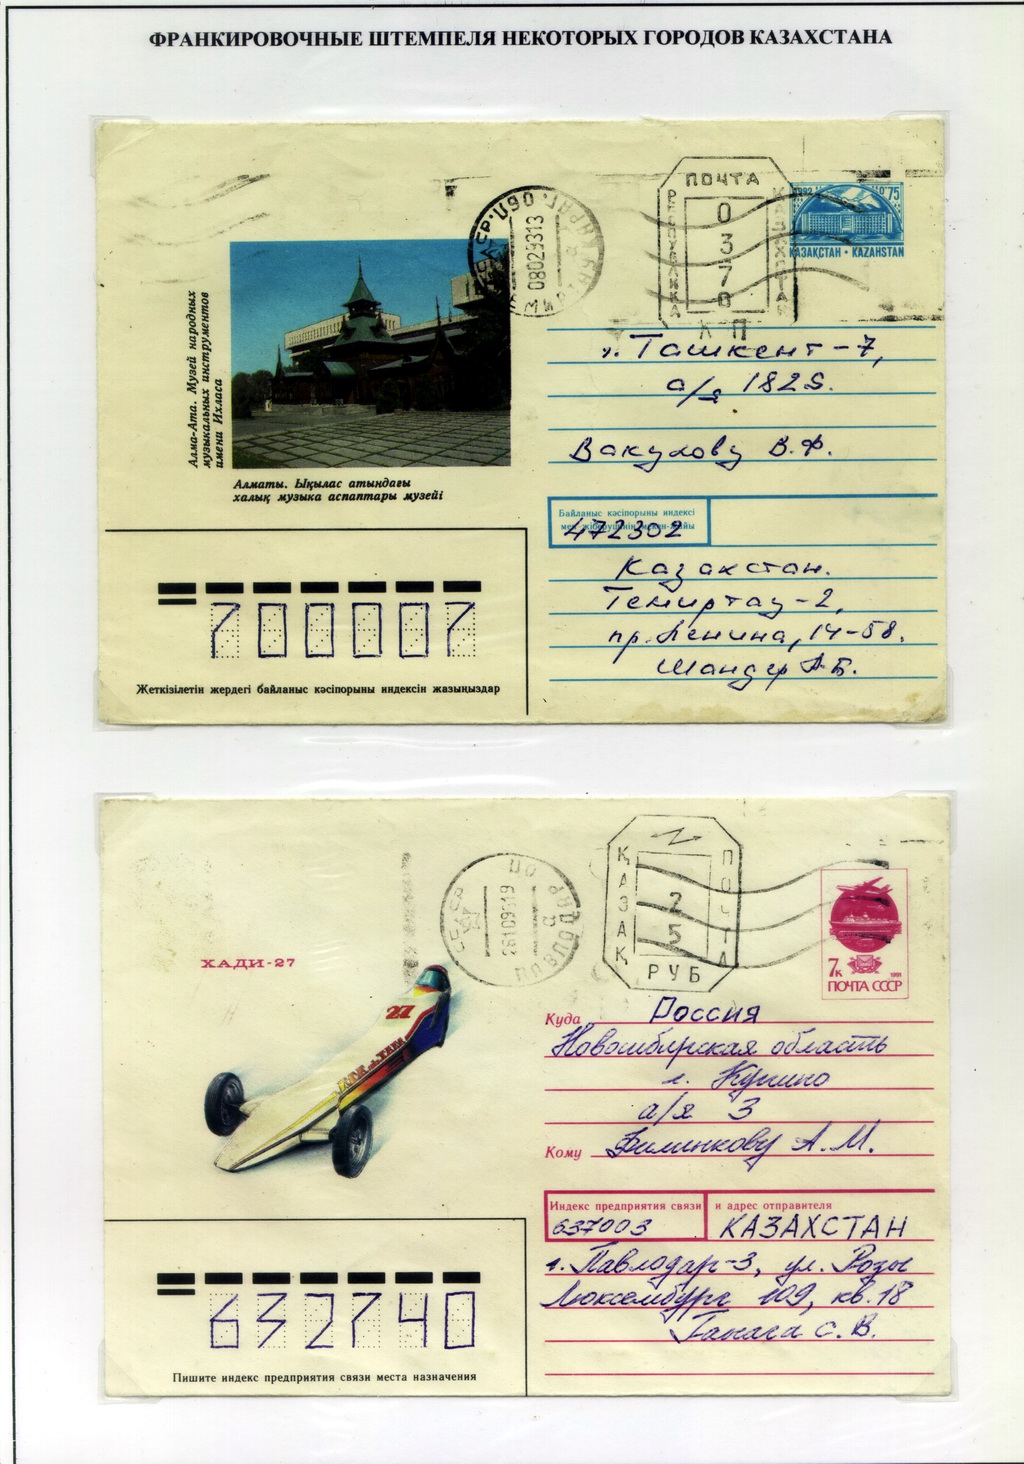 ФРАНКИРОВОЧНЫЕ ШТЕМПЕЛЯ НЕКОТОРЫХ ГОРОДОВ КАЗАХСТАНА
ПОЧТА
РЕСПУБЛИКА
КАЗАХСТАН
0370
КП
1992
0 75
ҚАЗАҚСТАН • KAZAHSTAN
08029313
Алма-Ата. Музей народных
музыкальных инструментов
имени Ихласа
Алматы. Ықылас атындағы
халық музыка аспаптары музейі
г. Ташкент-7,
а/я 1825.
Вакулову В.Ф.
Байланыс кәсіпорыны индексі
472302
Казахстан.
Темиртау-2,
пр. Ленина, 14-58.
Шандер А.Б.
700007
Жеткізілетін жердегі байланыс кәсіпорыны индексін жазыңыздар
ҚАЗАҚ
ПОЧТА
25
РУБ
ПАВЛОДАР
7к
1991
ПОЧТА СССР
ХАДИ-27
27
Куда Россия
Новосибирская область
г. Купино
а/я 3
Кому А.М.
Индекс предприятия связи и адрес отправителя
637003 КАЗАХСТАН
г. Павлодар-3, ул. Розы
Люксембург 109, кв. 18
С.В.
632740
Пишите индекс предприятия связи места назначения